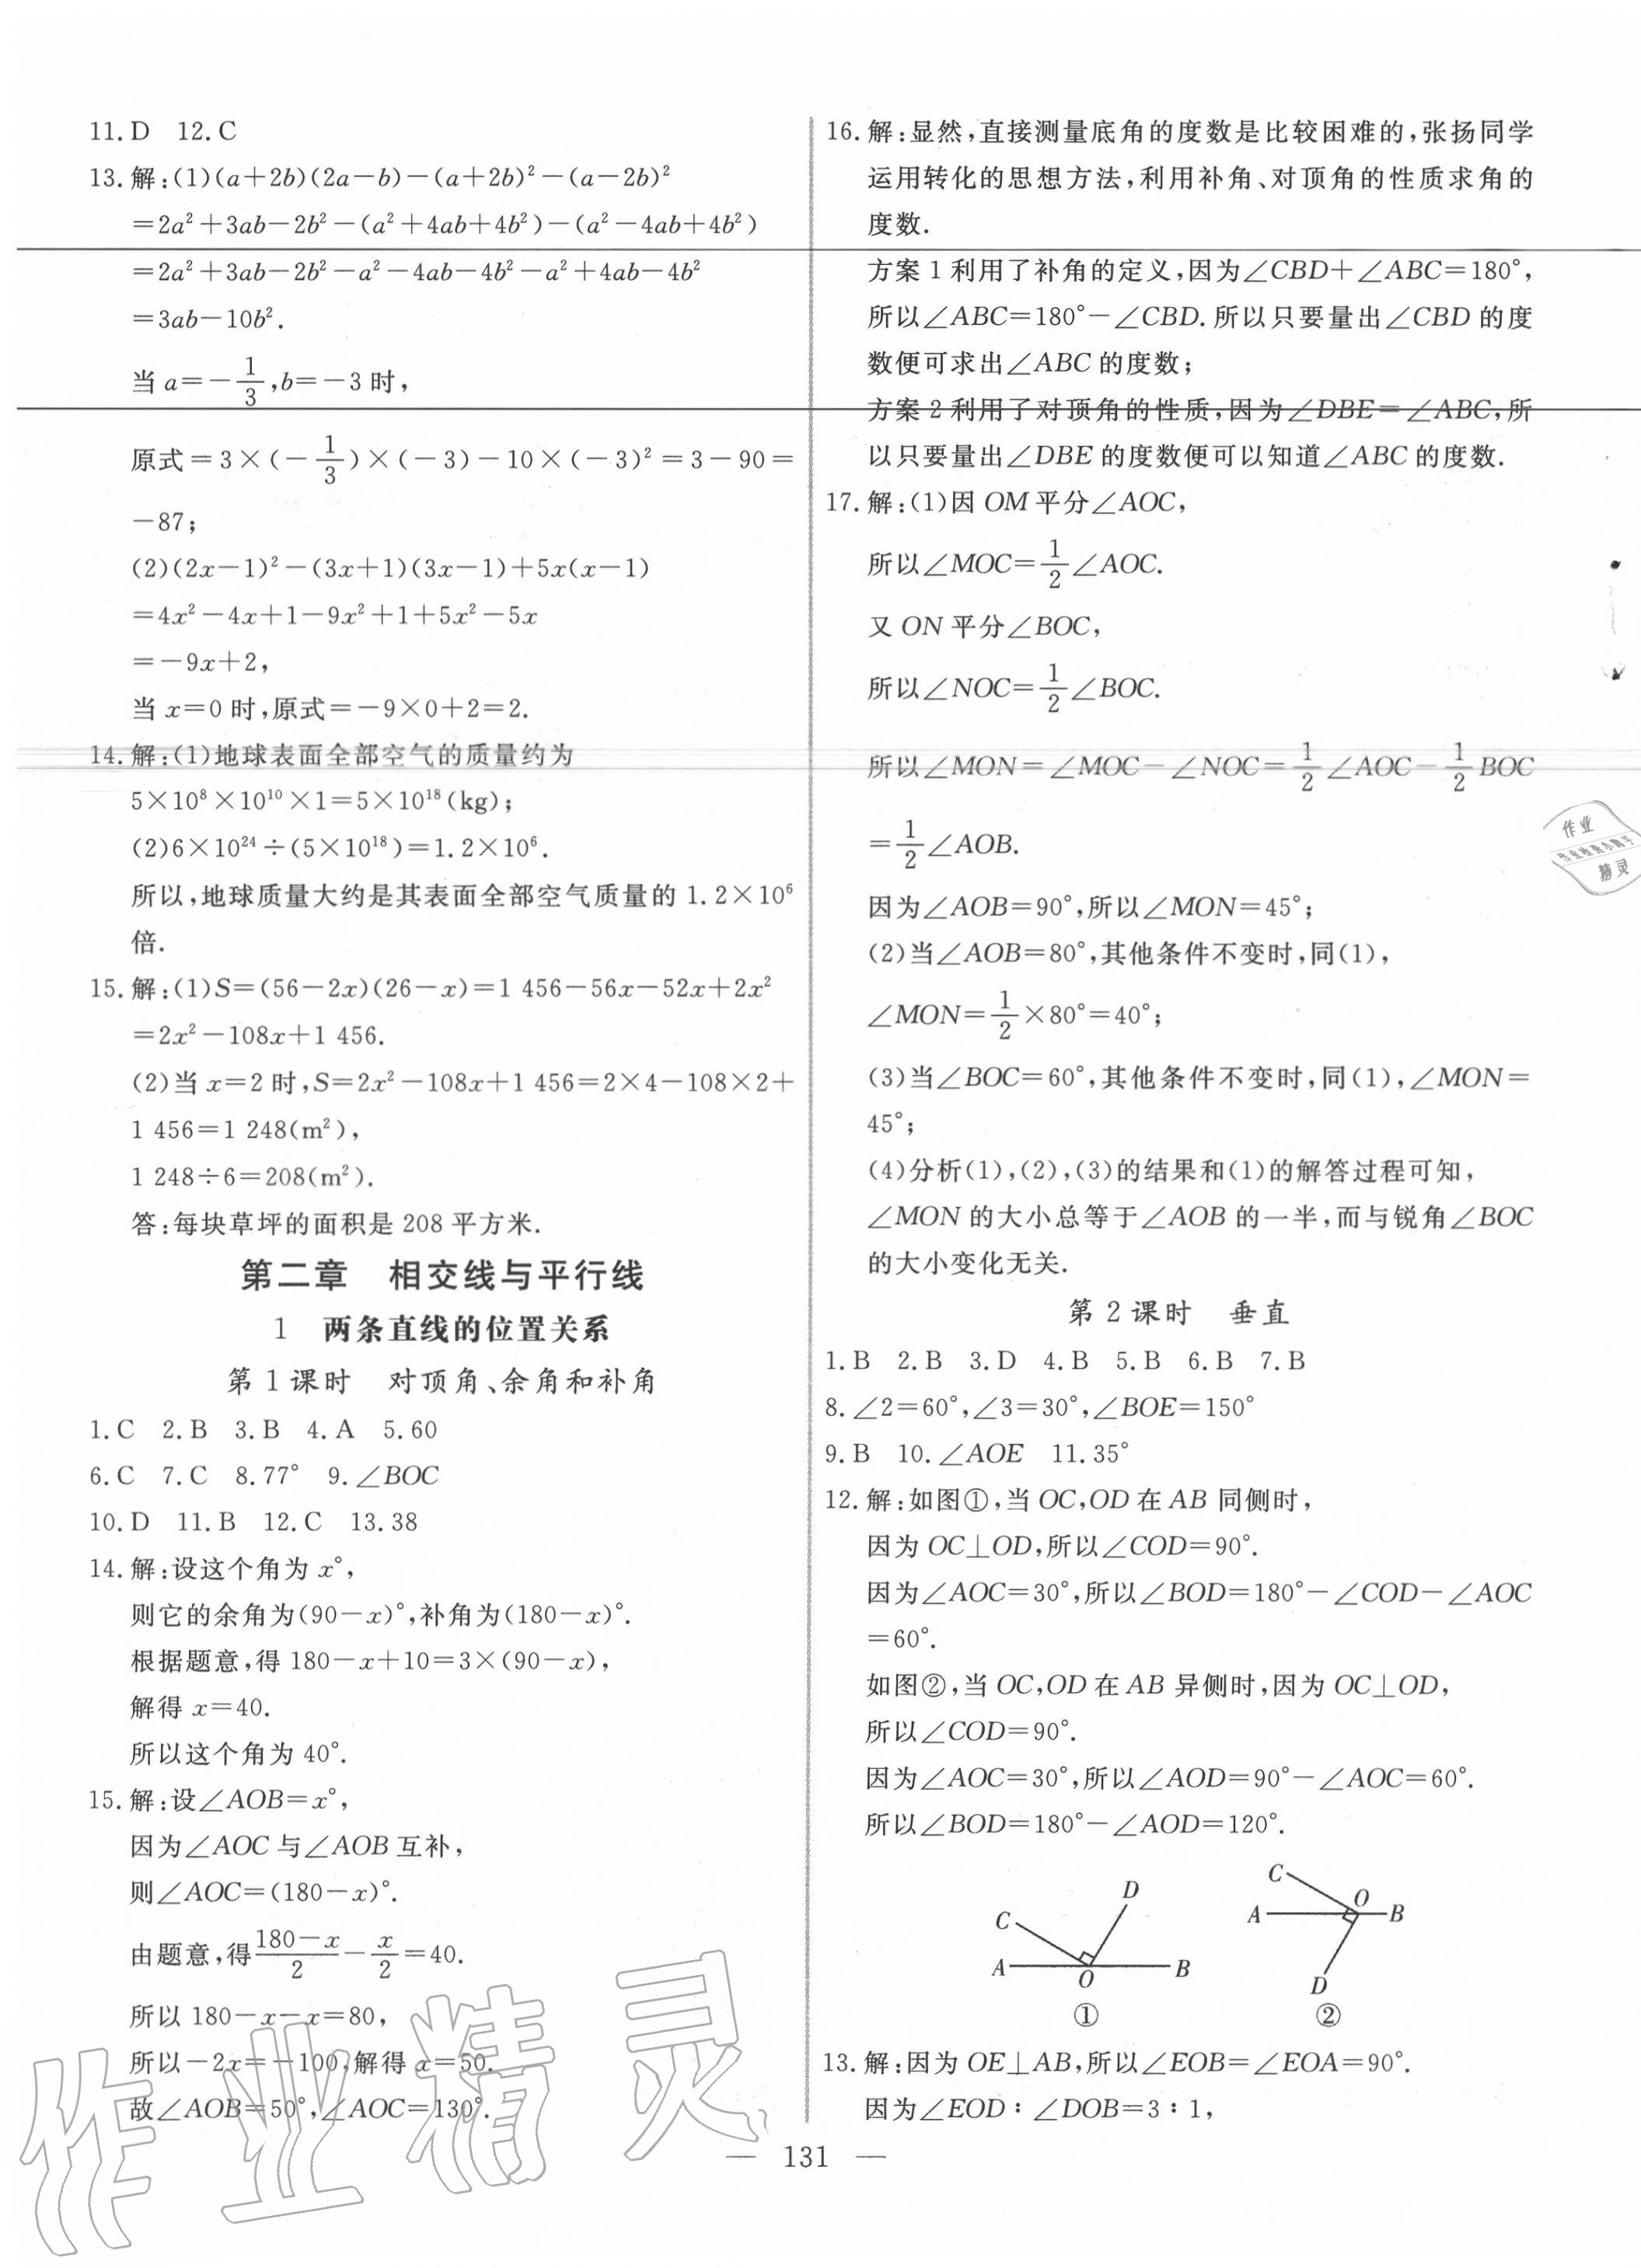 11. D　12. C
13. 解:(1)(a+2b)(2a－b)－(a+2b)²－(a－2b)²
=2a²+3ab－2b²－(a²+4ab+4b²)－(a²－4ab+4b²)
=2a²+3ab－2b²－a²－4ab－4b²－a²+4ab－4b²
=3ab－10b².
当 a=－1/3,b=－3 时,
原式=3×(－1/3)×(－3)－10×(－3)²=3－90=
－87;
(2)(2x－1)²－(3x+1)(3x－1)+5x(x－1)
=4x²－4x+1－9x²+1+5x²－5x
=－9x+2,
当 x=0 时,原式=－9×0+2=2.
14. 解:(1)地球表面全部空气的质量约为
5×10⁸×10¹⁰×1=5×10¹⁸(kg);
(2)6×10²⁴÷(5×10¹⁸)=1.2×10⁶.
所以,地球质量大约是其表面全部空气质量的 1.2×10⁶
倍.
15. 解:(1)S=(56－2x)(26－x)=1 456－56x－52x+2x²
=2x²－108x+1 456.
(2)当 x=2 时,S=2x²－108x+1 456=2×4－108×2+
1 456=1 248(m²),
1 248÷6=208(m²).
答:每块草坪的面积是 208 平方米.
第二章　相交线与平行线
1　两条直线的位置关系
第 1 课时　对顶角、余角和补角
1. C　2. B　3. B　4. A　5. 60
6. C　7. C　8. 77°　9. ∠BOC
10. D　11. B　12. C　13. 38
14. 解:设这个角为 x°,
则它的余角为(90－x)°,补角为(180－x)°.
根据题意,得 180－x+10=3×(90－x),
解得 x=40.
所以这个角为 40°.
15. 解:设∠AOB=x°,
因为∠AOC 与∠AOB 互补,
则∠AOC=(180－x)°.
由题意,得(180－x)/2－x/2=40.
所以 180－x－x=80,
所以－2x=－100,解得 x=50.
故∠AOB=50°,∠AOC=130°.
16. 解:显然,直接测量底角的度数是比较困难的,张扬同学
运用转化的思想方法,利用补角、对顶角的性质求角的
度数.
方案 1 利用了补角的定义,因为∠CBD+∠ABC=180°,
所以∠ABC=180°－∠CBD. 所以只要量出∠CBD 的度
数便可求出∠ABC 的度数;
方案 2 利用了对顶角的性质,因为∠DBE=∠ABC,所
以只要量出∠DBE 的度数便可以知道∠ABC 的度数.
17. 解:(1)因 OM 平分∠AOC,
所以∠MOC=1/2∠AOC.
又 ON 平分∠BOC,
所以∠NOC=1/2∠BOC.
所以∠MON=∠MOC－∠NOC=1/2∠AOC－1/2BOC
=1/2∠AOB.
因为∠AOB=90°,所以∠MON=45°;
(2)当∠AOB=80°,其他条件不变时,同(1),
∠MON=1/2×80°=40°;
(3)当∠BOC=60°,其他条件不变时,同(1),∠MON=
45°;
(4)分析(1),(2),(3)的结果和(1)的解答过程可知,
∠MON 的大小总等于∠AOB 的一半,而与锐角∠BOC
的大小变化无关.
第 2 课时　垂直
1. B　2. B　3. D　4. B　5. B　6. B　7. B
8. ∠2=60°,∠3=30°,∠BOE=150°
9. B　10. ∠AOE　11. 35°
12. 解:如图①,当 OC,OD 在 AB 同侧时,
因为 OC⊥OD,所以∠COD=90°.
因为∠AOC=30°,所以∠BOD=180°－∠COD－∠AOC
=60°.
如图②,当 OC,OD 在 AB 异侧时,因为 OC⊥OD,
所以∠COD=90°.
因为∠AOC=30°,所以∠AOD=90°－∠AOC=60°.
所以∠BOD=180°－∠AOD=120°.
C D A O B
①
C O A B D
②
13. 解:因为 OE⊥AB,所以∠EOB=∠EOA=90°.
因为∠EOD∶∠DOB=3∶1,
— 131 —
作业
作业检查小助手
精灵
作业精灵